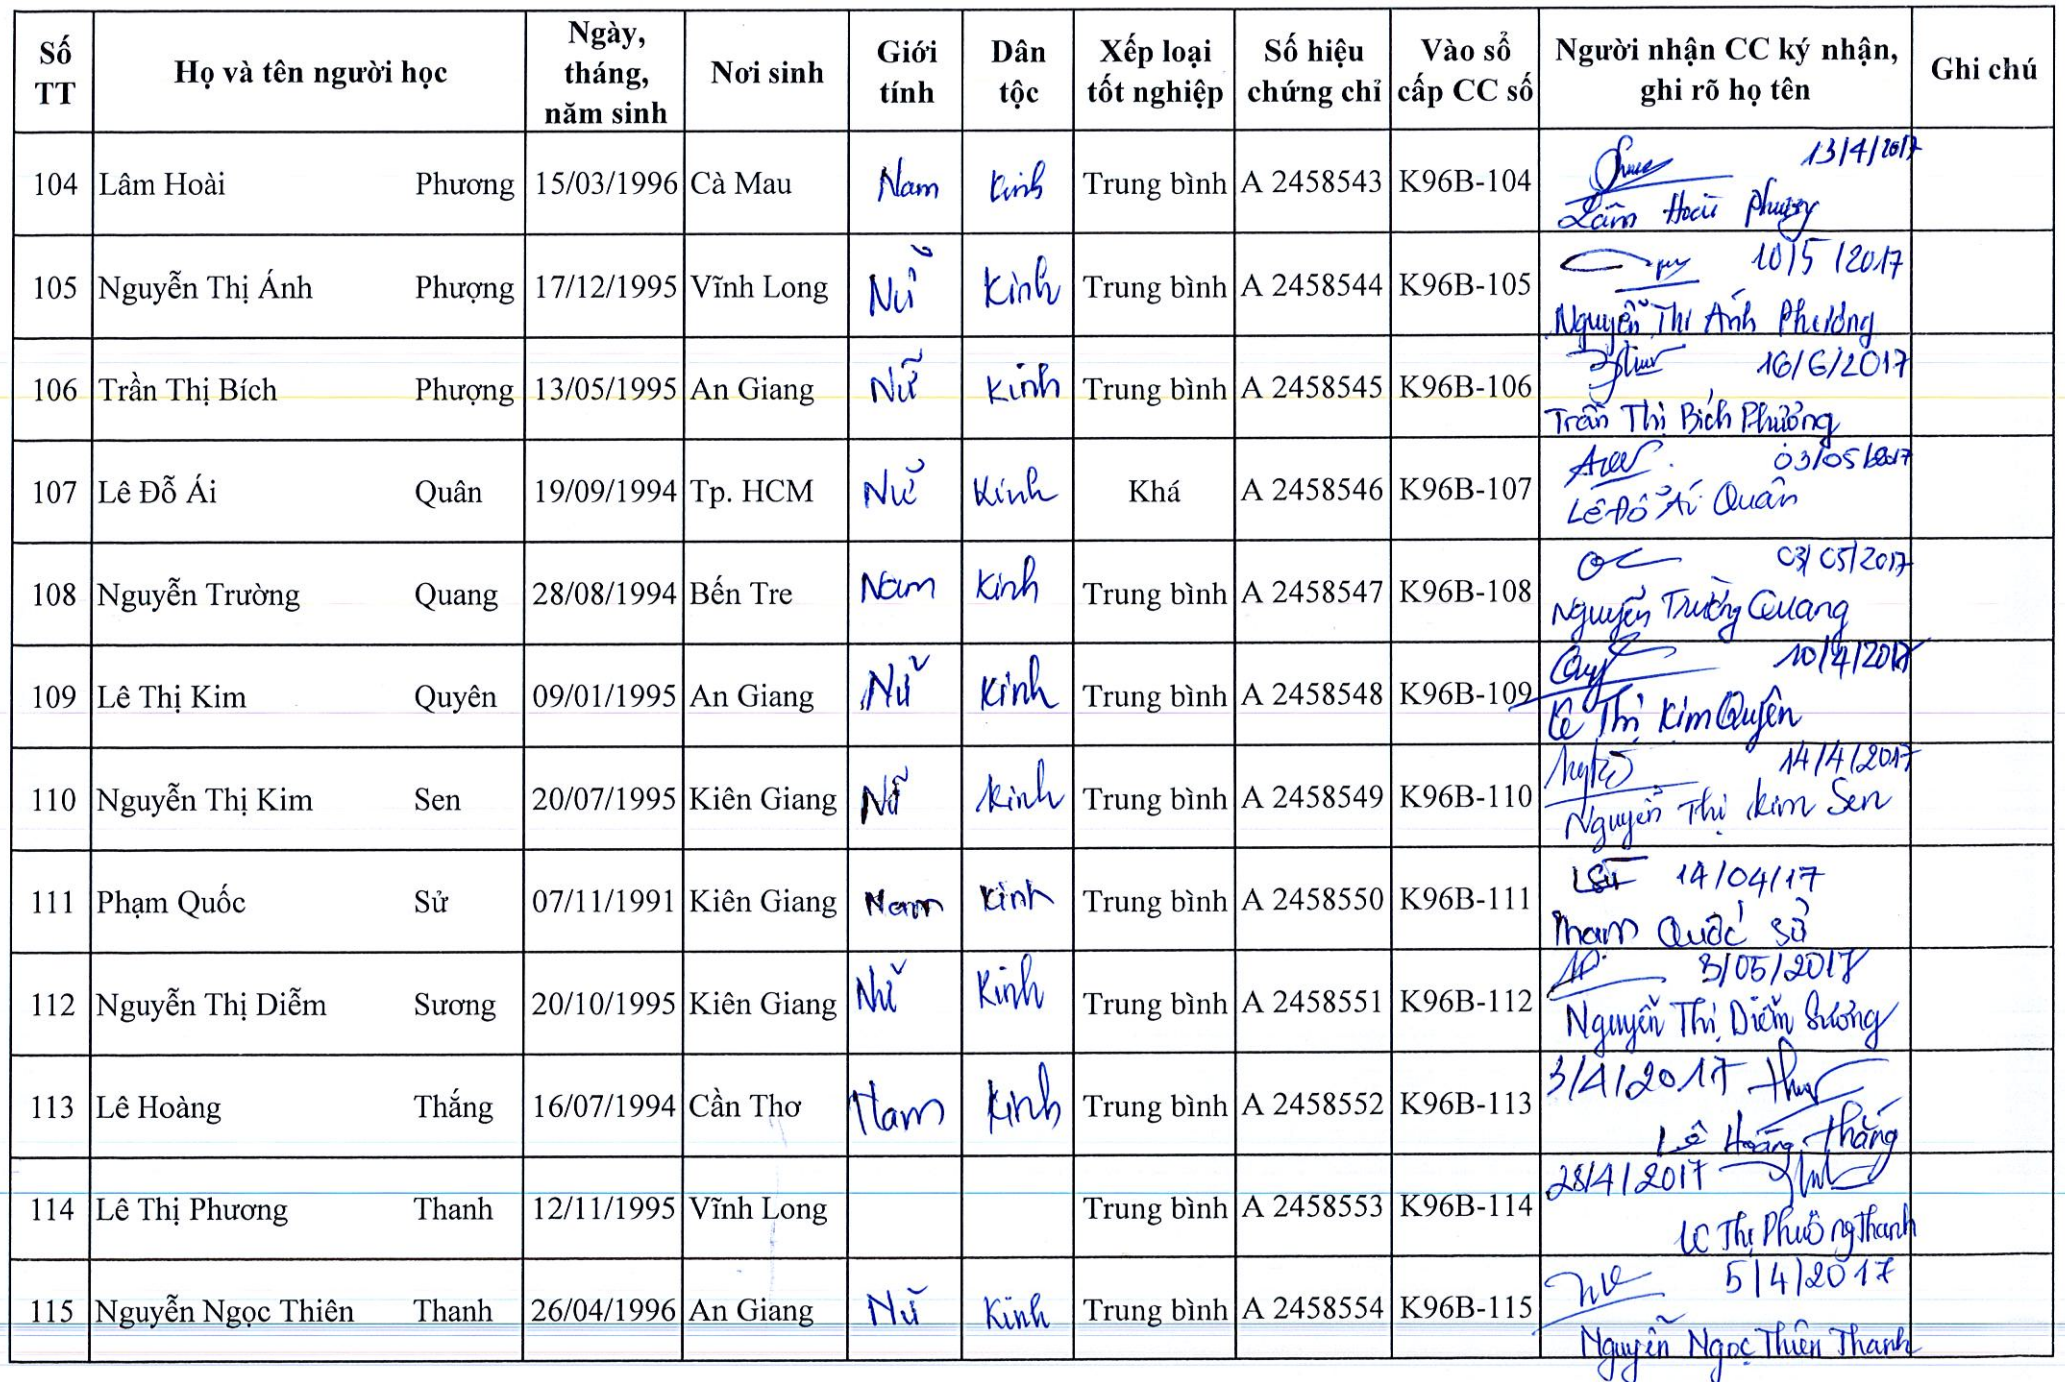 Số TT | Họ và tên người học | Ngày, tháng, năm sinh | Nơi sinh | Giới tính | Dân tộc | Xếp loại tốt nghiệp | Số hiệu chứng chỉ | Vào sổ cấp CC số | Người nhận CC ký nhận, ghi rõ họ tên | Ghi chú
104 Lâm Hoài Phương 15/03/1996 Cà Mau Nam Kinh Trung bình A 2458543 K96B-104 13/4/2017
Lâm Hoài Phương
105 Nguyễn Thị Ánh Phượng 17/12/1995 Vĩnh Long Nữ Kinh Trung bình A 2458544 K96B-105 10/5/2017
Nguyễn Thị Ánh Phượng
106 Trần Thị Bích Phượng 13/05/1995 An Giang Nữ Kinh Trung bình A 2458545 K96B-106 16/6/2017
Trần Thị Bích Phượng
107 Lê Đỗ Ái Quân 19/09/1994 Tp. HCM Nữ Kinh Khá A 2458546 K96B-107 03/05/2017
Lê Đỗ Ái Quân
108 Nguyễn Trường Quang 28/08/1994 Bến Tre Nam Kinh Trung bình A 2458547 K96B-108 03/05/2017
Nguyễn Trường Quang
109 Lê Thị Kim Quyên 09/01/1995 An Giang Nữ Kinh Trung bình A 2458548 K96B-109 10/4/2017
Lê Thị Kim Quyên
110 Nguyễn Thị Kim Sen 20/07/1995 Kiên Giang Nữ Kinh Trung bình A 2458549 K96B-110 14/4/2017
Nguyễn Thị Kim Sen
111 Phạm Quốc Sử 07/11/1991 Kiên Giang Nam Kinh Trung bình A 2458550 K96B-111 14/04/17
Phạm Quốc Sử
112 Nguyễn Thị Diễm Sương 20/10/1995 Kiên Giang Nữ Kinh Trung bình A 2458551 K96B-112 3/05/2017
Nguyễn Thị Diễm Sương
113 Lê Hoàng Thắng 16/07/1994 Cần Thơ Nam Kinh Trung bình A 2458552 K96B-113 3/4/2017
Lê Hoàng Thắng
114 Lê Thị Phương Thanh 12/11/1995 Vĩnh Long Trung bình A 2458553 K96B-114 28/4/2017
Lê Thị Phương Thanh
115 Nguyễn Ngọc Thiên Thanh 26/04/1996 An Giang Nữ Kinh Trung bình A 2458554 K96B-115 5/4/2017
Nguyễn Ngọc Thiên Thanh